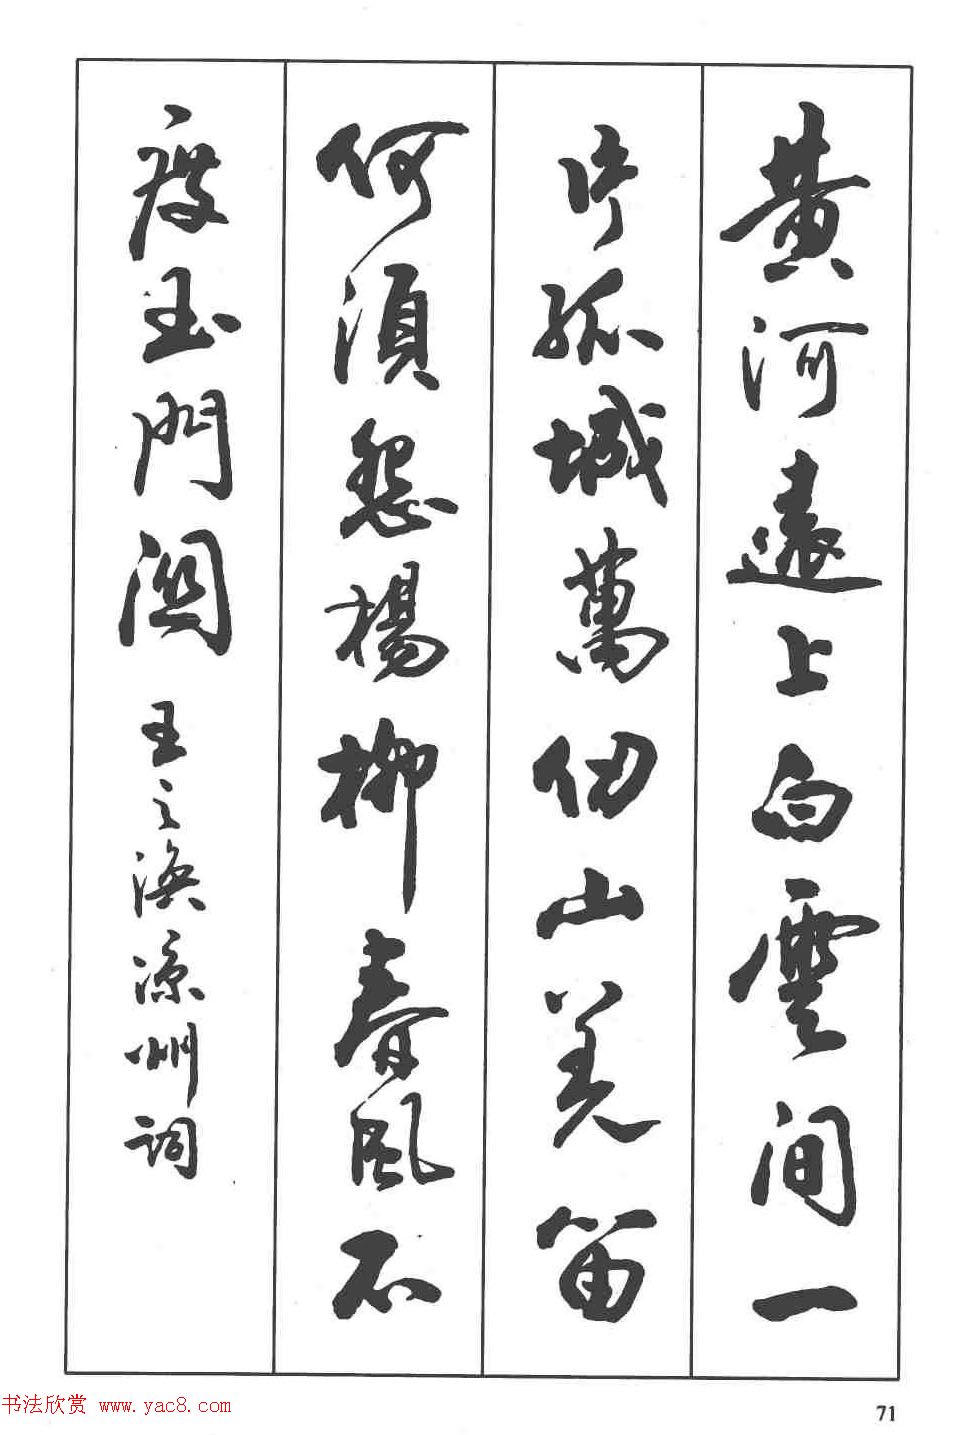 黄河遠上白雲间一
片孤城萬仞山羌笛
何須怨楊柳春風不
度玉門関 王之渙凉州词
书法欣赏 www.yac8.com
71